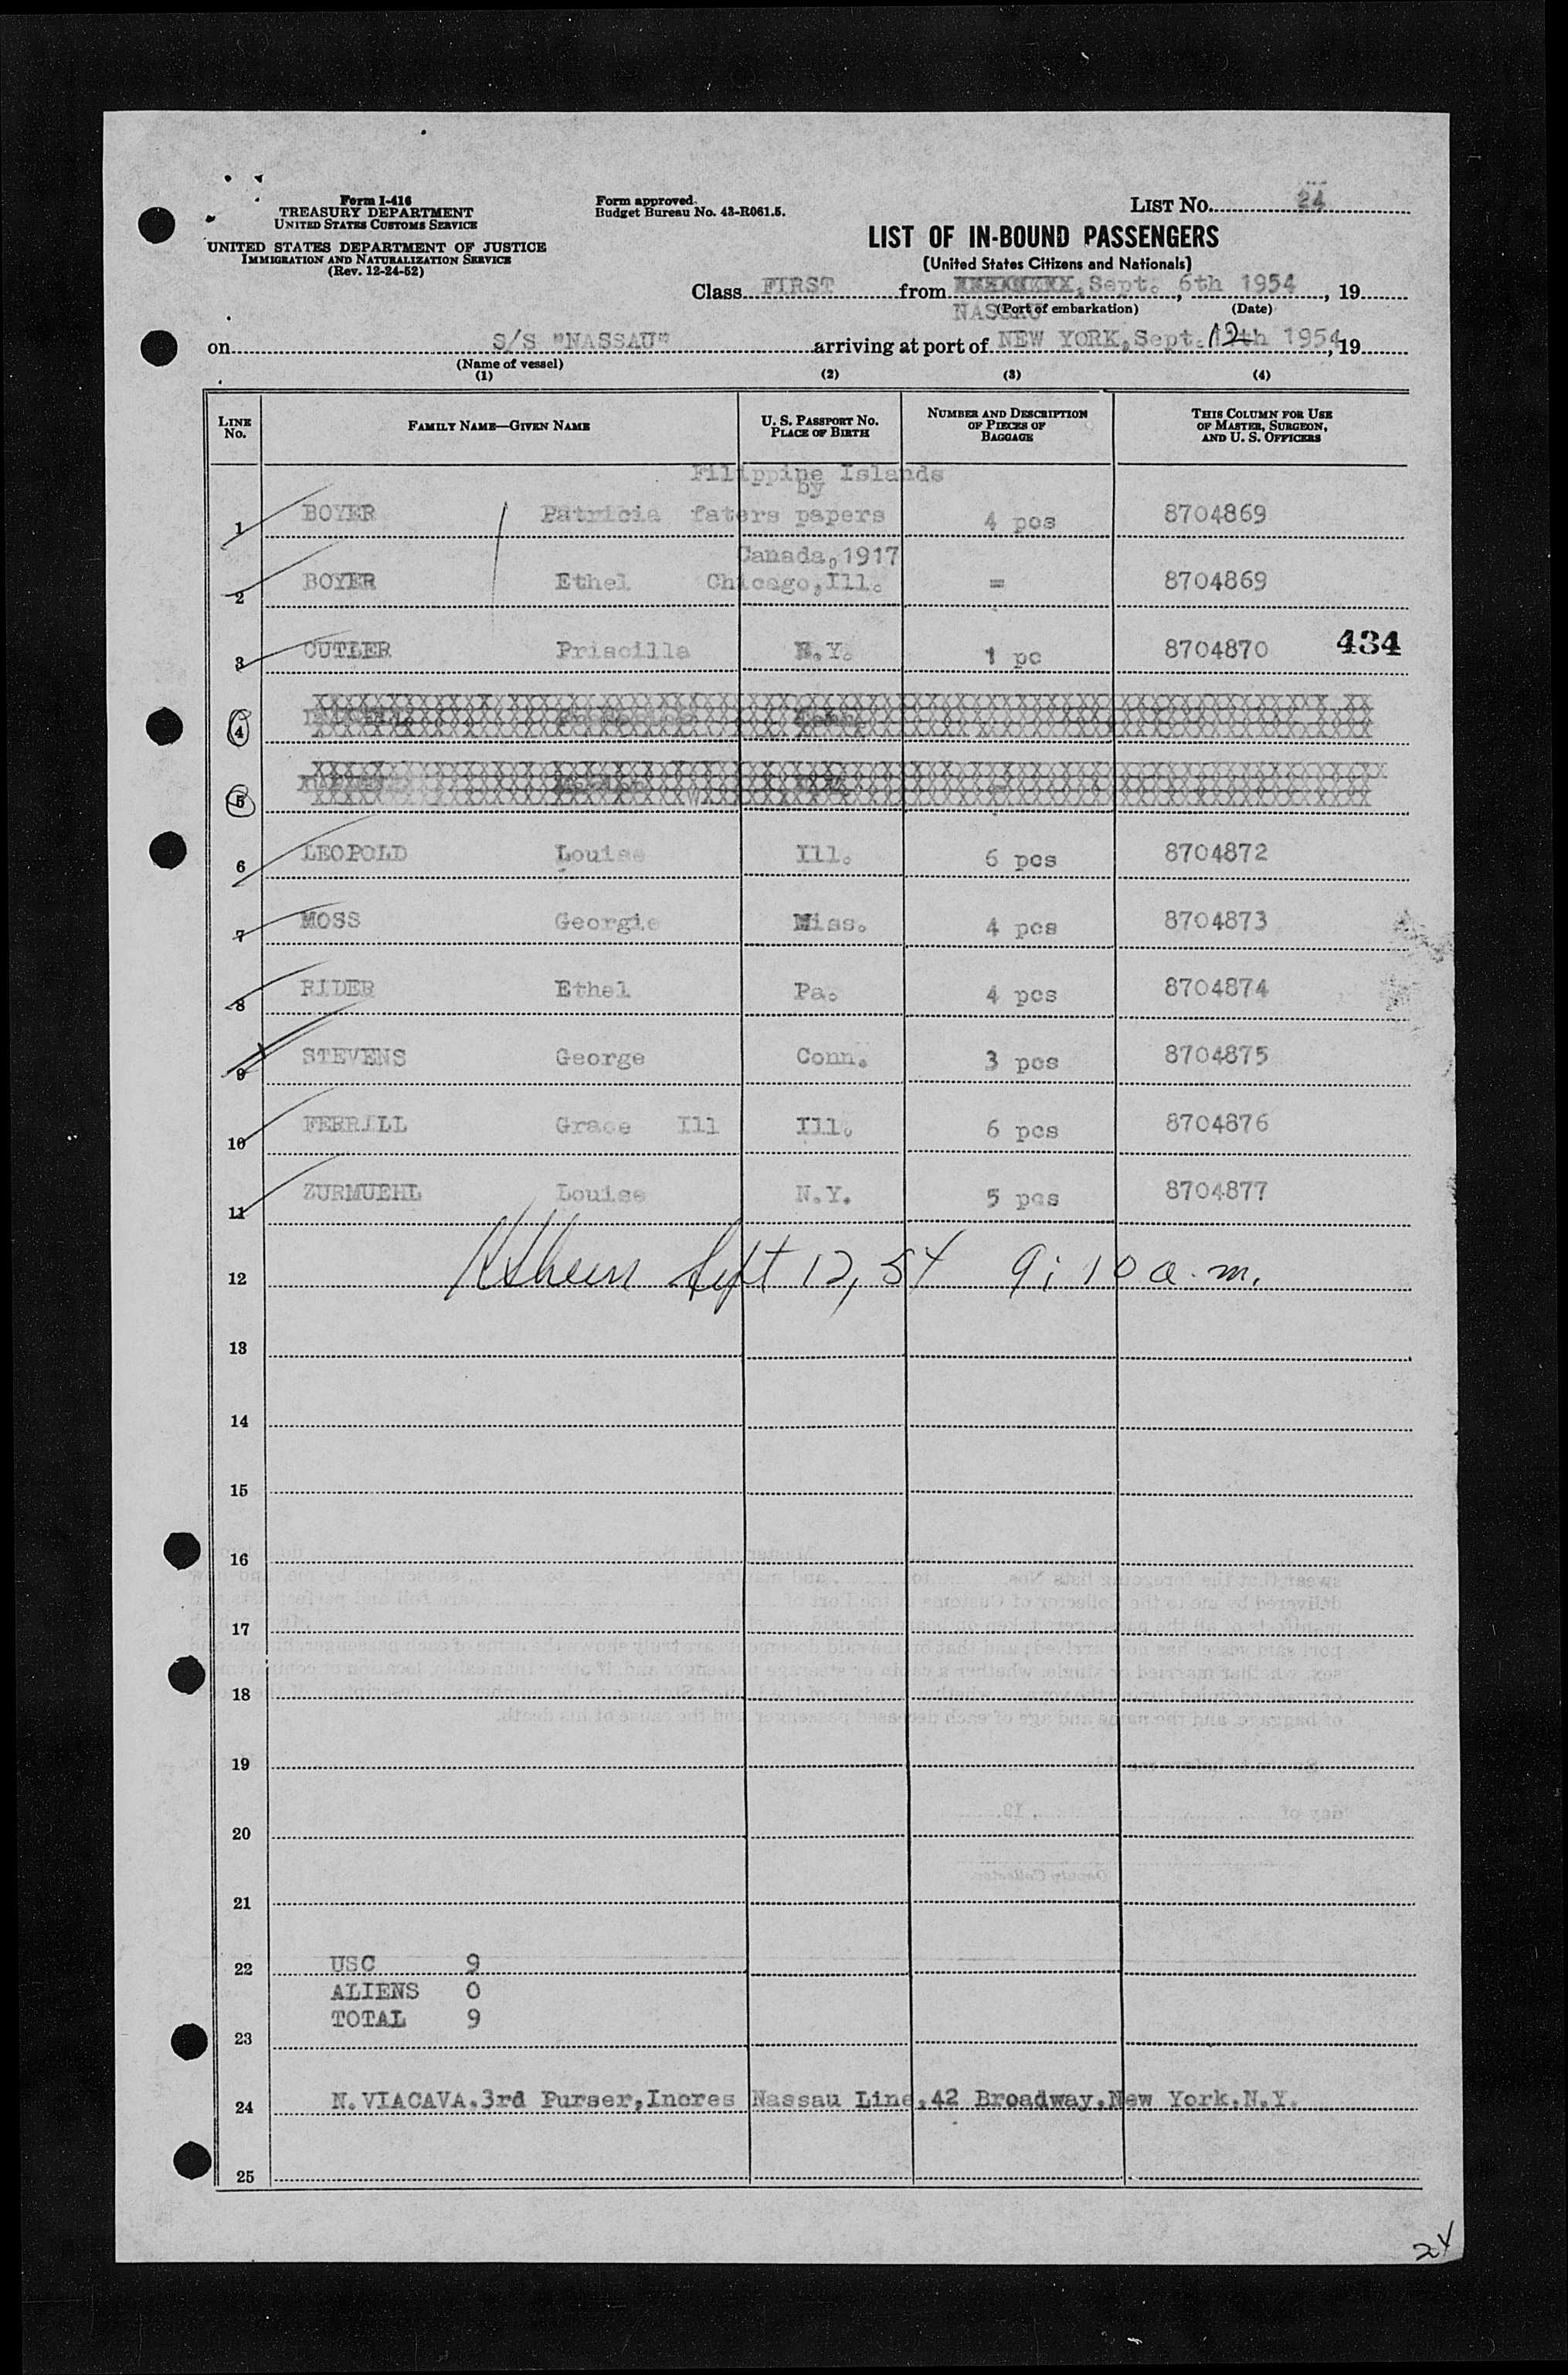 Form I-416
TREASURY DEPARTMENT
UNITED STATES CUSTOMS SERVICE
UNITED STATES DEPARTMENT OF JUSTICE
IMMIGRATION AND NATURALIZATION SERVICE
(Rev. 12-24-52)
Form approved.
Budget Bureau No. 43-R061.5.
LIST No. 24
LIST OF IN-BOUND PASSENGERS
(United States Citizens and Nationals)
Class FIRST from NASSAU, Sept. 6th 1954, 19
(Port of embarkation) (Date)
on S/S "NASSAU" arriving at port of NEW YORK, Sept. 12th 1954, 19
(Name of vessel)
(1) (2) (3) (4)
LINE No. FAMILY NAME—GIVEN NAME U. S. PASSPORT NO. PLACE OF BIRTH NUMBER AND DESCRIPTION OF PIECES OF BAGGAGE THIS COLUMN FOR USE OF MASTER, SURGEON, AND U. S. OFFICERS
Filippine Islands
by
1 BOYER Patricia faters papers 4 pcs 8704869
Canada,1917
2 BOYER Ethel Chicago,Ill. = 8704869
3 CUTLER Priscilla N.Y. 1 pc 8704870 434
4
5
6 LEOPOLD Louise Ill. 6 pcs 8704872
7 MOSS Georgie Miss. 4 pcs 8704873
8 RIDER Ethel Pa. 4 pcs 8704874
9 STEVENS George Conn. 3 pcs 8704875
10 FERRILL Grace Ill Ill. 6 pcs 8704876
11 ZURMUEHL Louise N.Y. 5 pcs 8704877
12 Sept 12, 54 9:10 a.m.
13
14
15
16
17
18
19
20
21
22 USC 9
ALIENS 0
TOTAL 9
23
24 N.VIACAVA.3rd Purser,Incres Nassau Line,42 Broadway,New York.N.Y.
25
24